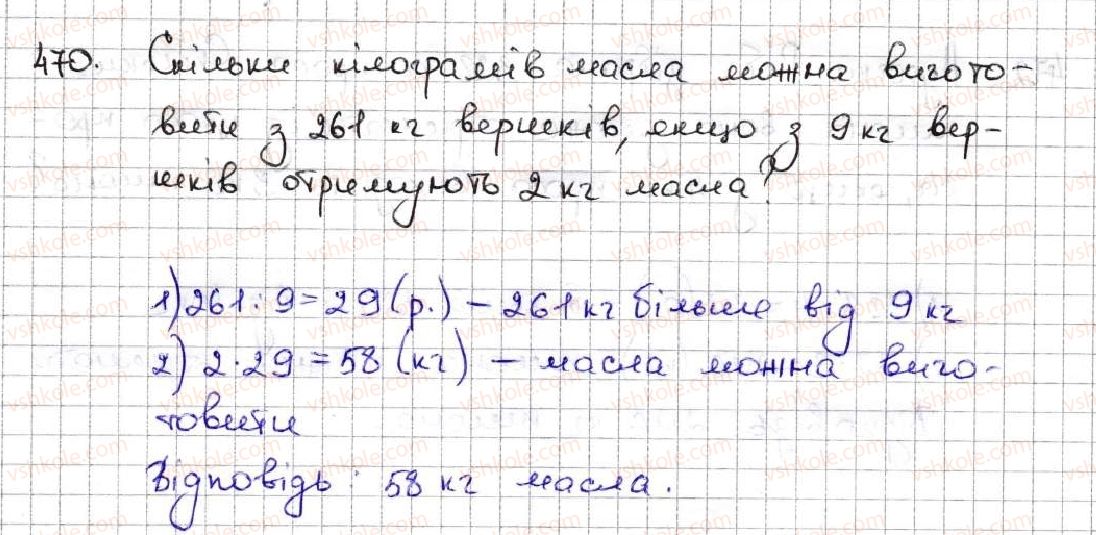 470. Скільки кілограмів масла можна вигото-
вити з 261 кг вершків, якщо з 9 кг вер-
шків отримують 2 кг масла?
1) 261 : 9 = 29 (р.) – 261 кг більше від 9 кг
2) 2 · 29 = 58 (кг) – масла можна виго-
товити
Відповідь: 58 кг масла.